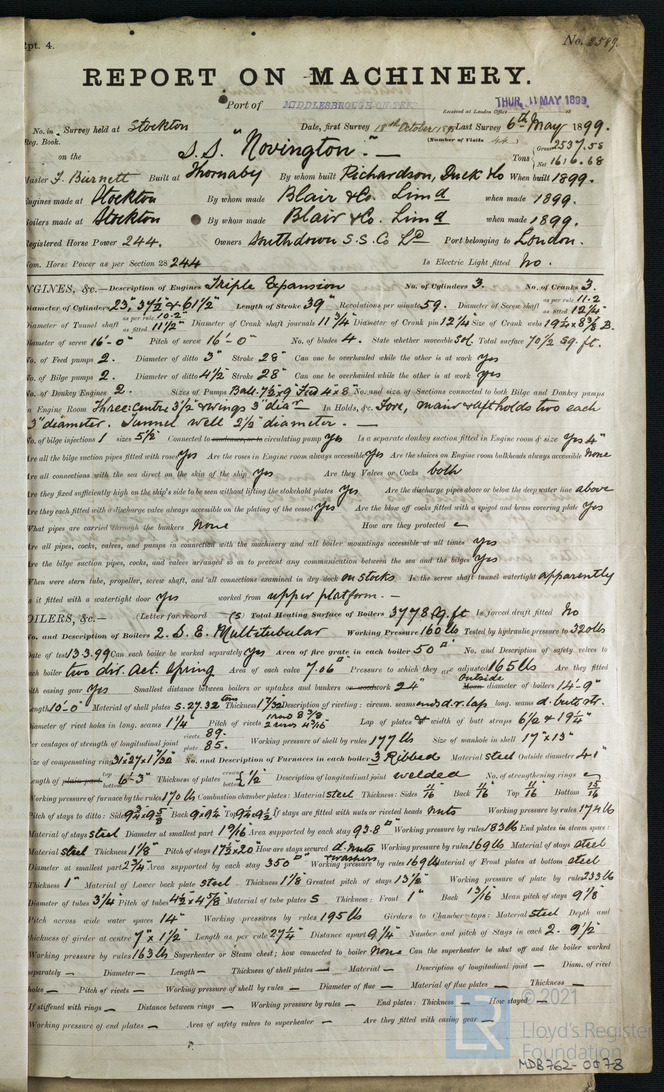 Rpt. 4.
No. 2589.
REPORT ON MACHINERY.
Port of MIDDLESBROUGH-ON-TEES
Received at London Office THUR. 11 MAY 1899
No. in Survey held at Stockton Date, first Survey 18th October 1898 Last Survey 6th May 1899.
Reg. Book. (Number of Visits 44)
on the S.S. "Novington" Tons Gross 2537.58 Net 1616.68
Master F. Burnett Built at Thornaby By whom built Richardson, Duck & Co When built 1899.
Engines made at Stockton By whom made Blair & Co. Limd when made 1899.
Boilers made at Stockton By whom made Blair & Co. Limd when made 1899.
Registered Horse Power 244. Owners Southdown S.S. Co Ld Port belonging to London.
Nom. Horse Power as per Section 28 244 Is Electric Light fitted No.
ENGINES, &c.— Description of Engines Triple Expansion No. of Cylinders 3. No. of Cranks 3.
Diameter of Cylinders 23", 37½" & 61½" Length of Stroke 39" Revolutions per minute 59. Diameter of Screw shaft as per rule 11.2 as fitted 12¼"
Diameter of Tunnel shaft as per rule 10.2" as fitted 11½" Diameter of Crank shaft journals 11¾" Diameter of Crank pin 12¼" Size of Crank webs
Diameter of screw 16'-0" Pitch of screw 16'-0" No. of blades 4. State whether moveable Sol. Total surface 70½ sq. ft.
No. of Feed pumps 2. Diameter of ditto 3" Stroke 28" Can one be overhauled while the other is at work Yes
No. of Bilge pumps 2. Diameter of ditto 4½" Stroke 28" Can one be overhauled while the other is at work Yes
No. of Donkey Engines 2. Sizes of Pumps Ball. 7½"x9" Feed 4"x8" No. and size of Suctions connected to both Bilge and Donkey pumps
In Engine Room Three: centre 3½" & wings 3" diar In Holds, &c. Fore, main & aft holds two each
3" diameter. Tunnel well 2½" diameter.—
No. of bilge injections 1 sizes 5½" Connected to condenser, or to circulating pump Yes Is a separate donkey suction fitted in Engine room & size Yes 4"
Are all the bilge suction pipes fitted with roses Yes Are the roses in Engine room always accessible Yes Are the sluices on Engine room bulkheads always accessible None
Are all connections with the sea direct on the skin of the ship Yes Are they Valves or Cocks both
Are they fixed sufficiently high on the ship's side to be seen without lifting the stokehold plates Yes Are the discharge pipes above or below the deep water line above
Are they each fitted with a discharge valve always accessible on the plating of the vessel Yes Are the blow off cocks fitted with a spigot and brass covering plate Yes
What pipes are carried through the bunkers None How are they protected
Are all pipes, cocks, valves, and pumps in connection with the machinery and all boiler mountings accessible at all times Yes
Are the bilge suction pipes, cocks, and valves arranged so as to prevent any communication between the sea and the bilges Yes
When were stern tube, propeller, screw shaft, and all connections examined in dry dock on stocks Is the screw shaft tunnel watertight apparently
Is it fitted with a watertight door Yes worked from upper platform.—
BOILERS, &c.— (Letter for record (S) Total Heating Surface of Boilers 3778 sq. ft Is forced draft fitted No
No. and Description of Boilers 2. S. E. Multitubular Working Pressure 160 lbs Tested by hydraulic pressure to 320 lbs
Date of test 13.3.99 Can each boiler be worked separately Yes Area of fire grate in each boiler 50 No. and Description of safety valves to
each boiler two dir. act. spring Area of each valve 7.06 Pressure to which they are adjusted 165 lbs Are they fitted
with easing gear Yes Smallest distance between boilers or uptakes and bunkers or woodwork 24" Outside Mean diameter of boilers 14'-9"
Length 10'-0" Material of shell plates S. 27.32 tons Thickness 1 5/32 Description of riveting: circum. seams ends d.r. lap long. seams d. butt str.
Diameter of rivet holes in long. seams 1¼" Pitch of rivets Lap of plates or width of butt straps 6½ & 19¼"
Per centages of strength of longitudinal joint rivets 89. plate 85. Working pressure of shell by rules 177 lb Size of manhole in shell 17"x13"
Size of compensating ring No. and Description of Furnaces in each boiler 3 Ribbed Material steel Outside diameter 41"
Length of plain part top bottom 6'-3" Thickness of plates crown bottom ½" Description of longitudinal joint welded No. of strengthening rings
Working pressure of furnace by the rules 170 lb Combustion chamber plates: Material steel Thickness: Sides 11/16 Back 11/16 Top 11/16 Bottom 15/16
Pitch of stays to ditto: Sides Back Top If stays are fitted with nuts or riveted heads nuts Working pressure by rules 174 lb
Material of stays steel Diameter at smallest part 1 9/16 Area supported by each stay 93.8 Working pressure by rules 183 lb End plates in steam space:
Material steel Thickness 1⅛" Pitch of stays 17½ x 20" How are stays secured d. nuts & washers Working pressure by rules 169 lb Material of stays steel
Diameter at smallest part 2¾ Area supported by each stay 350 Working pressure by rules 169 lb Material of Front plates at bottom steel
Thickness 1" Material of Lower back plate steel Thickness 1⅛ Greatest pitch of stays 13½" Working pressure of plate by rules 233 lb
Diameter of tubes 3¼ Pitch of tubes 4½ x 4⅝ Material of tube plates S Thickness: Front 1" Back 13/16 Mean pitch of stays 9⅛
Pitch across wide water spaces 14" Working pressures by rules 195 lb Girders to Chamber tops: Material steel Depth and
thickness of girder at centre 7" x 1½ Length as per rule 27¼" Distance apart 9¼" Number and pitch of Stays in each 2. 9½"
Working pressure by rules 163 lb Superheater or Steam chest; how connected to boiler None Can the superheater be shut off and the boiler worked
separately — Diameter — Length — Thickness of shell plates — Material — Description of longitudinal joint — Diam. of rivet
holes — Pitch of rivets — Working pressure of shell by rules — Diameter of flue — Material of flue plates — Thickness —
If stiffened with rings — Distance between rings — Working pressure by rules — End plates: Thickness — How stayed —
Working pressure of end plates — Area of safety valves to superheater — Are they fitted with easing gear —
LR © 2021
Lloyd's Register
Foundation
MDB762-0078